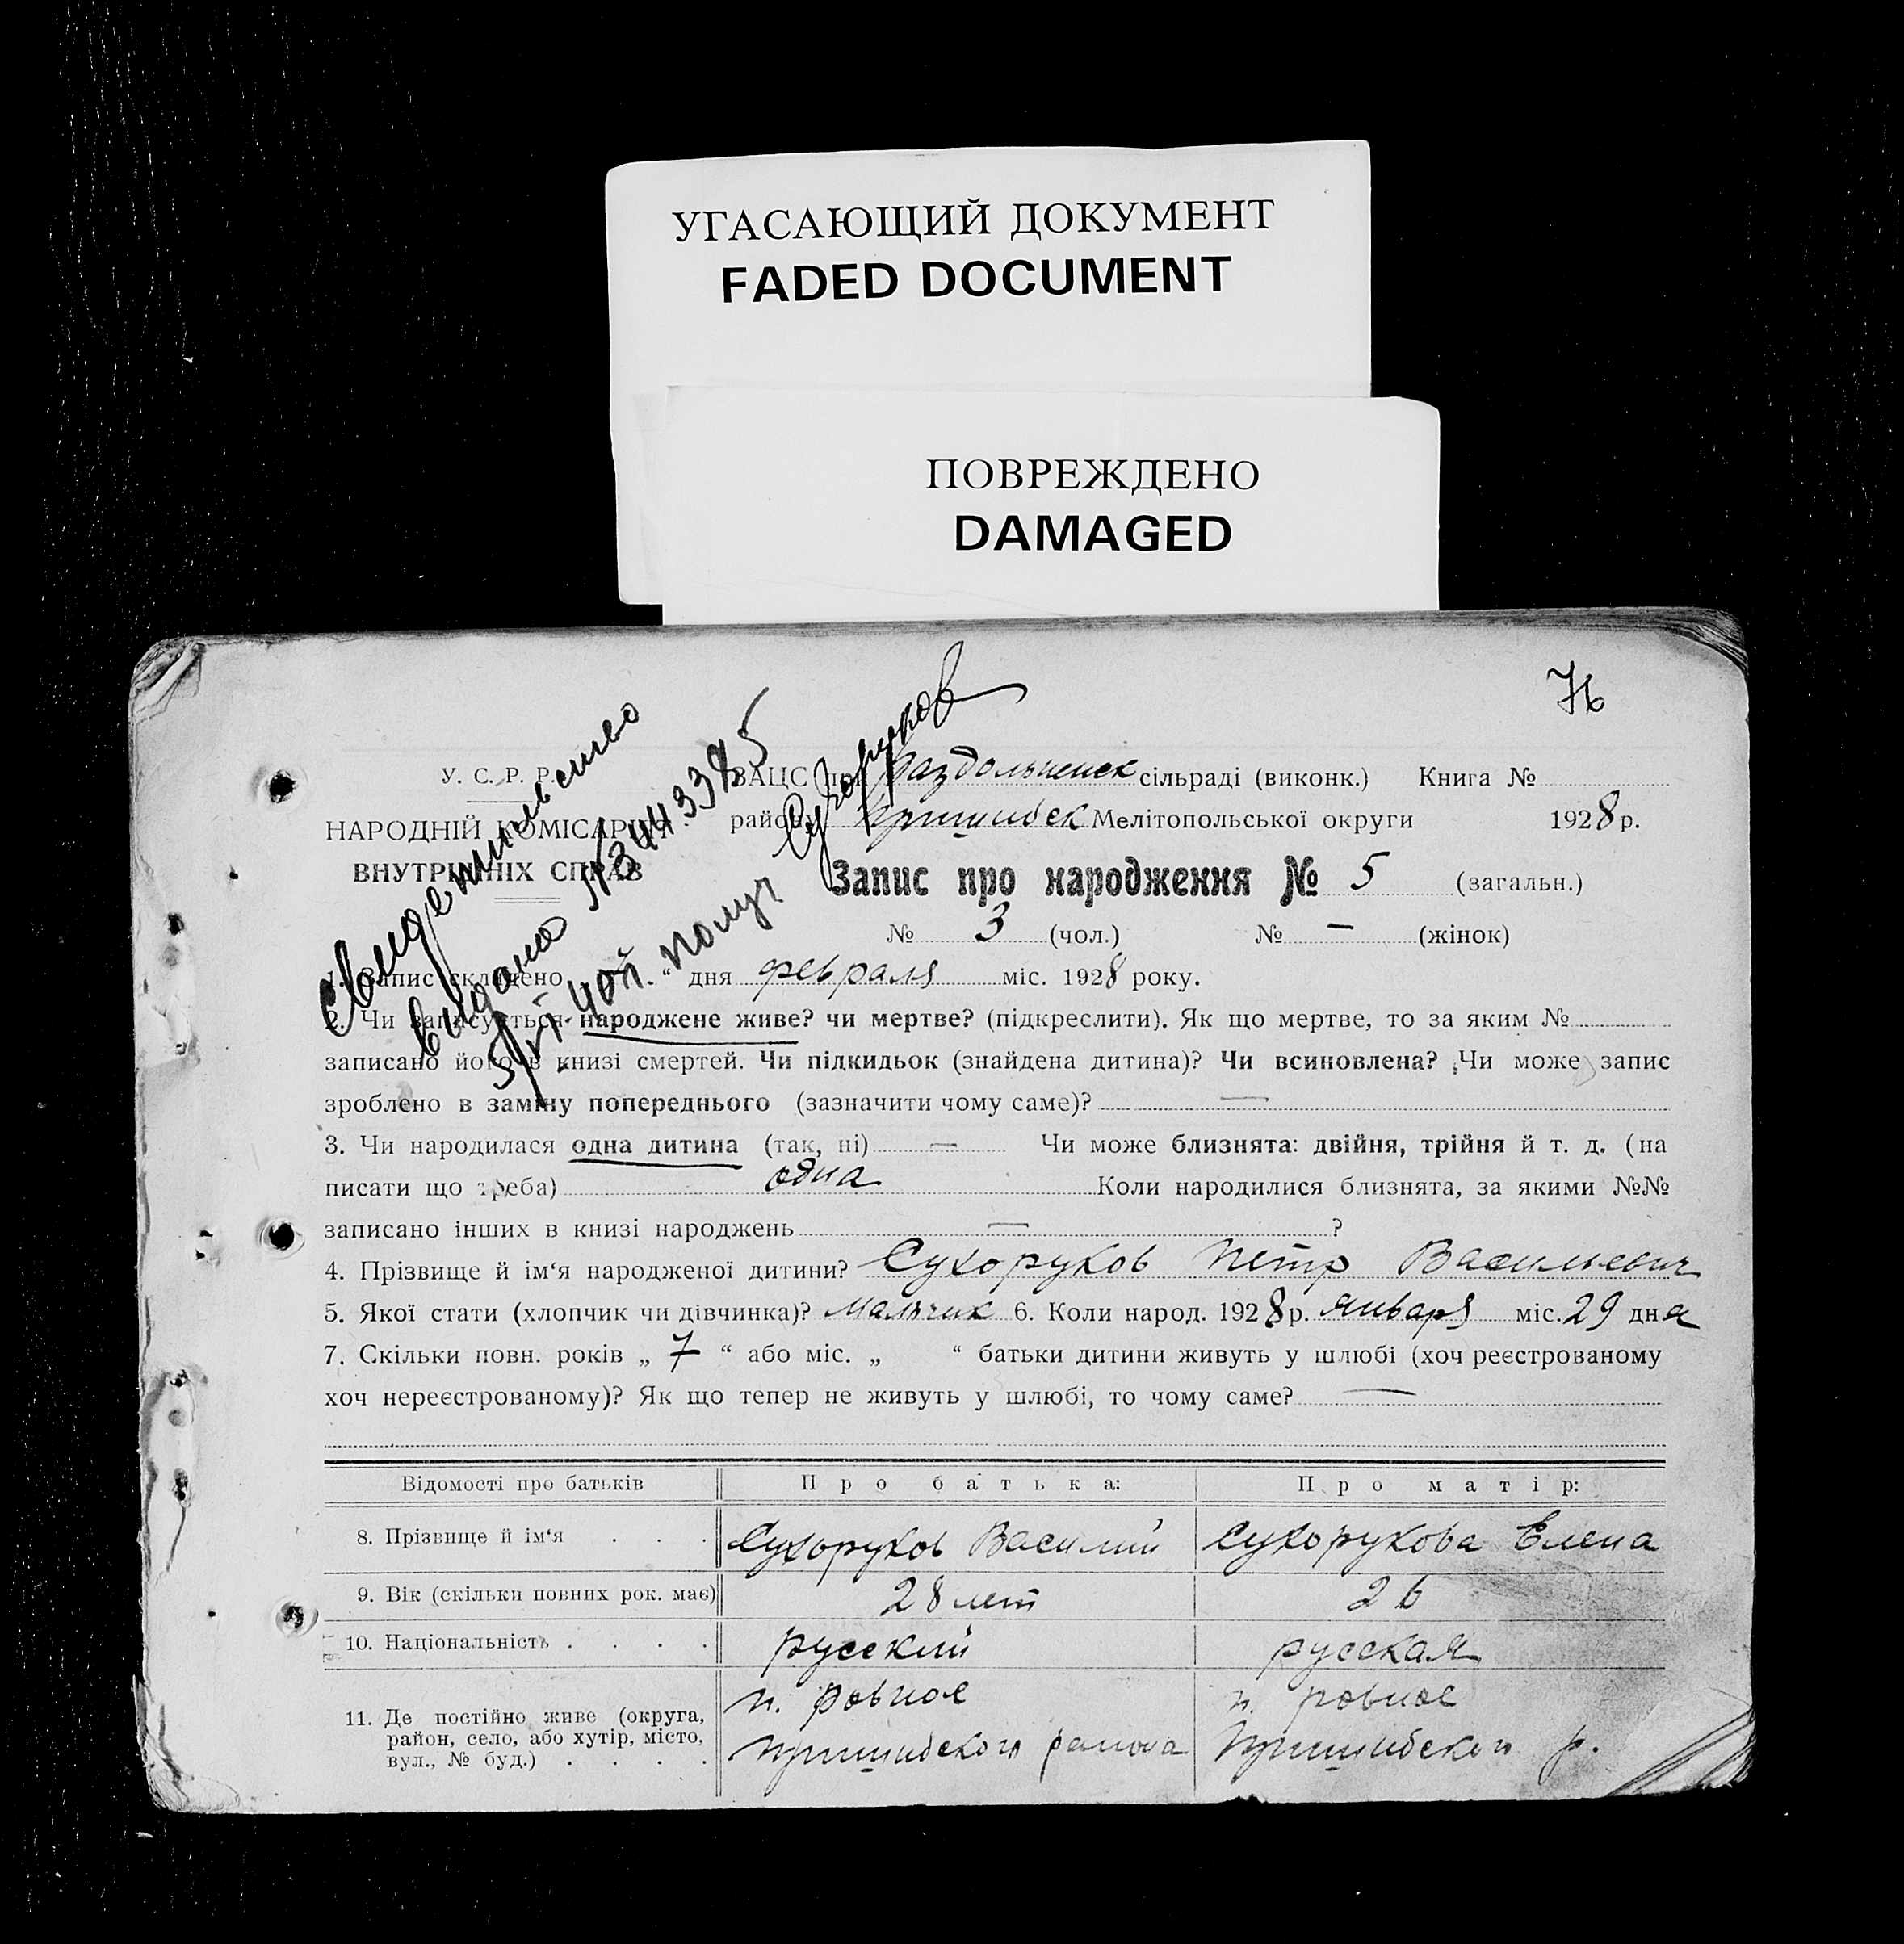 УГАСАЮЩИЙ ДОКУМЕНТ
FADED DOCUMENT
ПОВРЕЖДЕНО
DAMAGED
76
У. С. Р. Р.
НАРОДНІЙ КОМІСАРІЯТ
ВНУТРІШНІХ СПРАВ
Свидетельство
выдано № 3443385
получ Сухоруков
ЗАЦС по Раздольненск сільраді (виконк.) Книга №
району Пришибск Мелітопольської округи 1928 р.
Запис про народження № 5 (загальн.)
№ 3 (чол.) № — (жінок)
1. Запис складено “ дня февраля міс. 1928 року.
2. Чи записується народжене живе? чи мертве? (підкреслити). Як що мертве, то за яким №
записано його в книзі смертей. Чи підкидьок (знайдена дитина)? Чи всиновлена? Чи може запис
зроблено в заміну попереднього (зазначити чому саме)? —
3. Чи народилася одна дитина (так, ні) — Чи може близнята: двійня, трійня й т. д. (на
писати що треба) одна Коли народилися близнята, за якими №№
записано інших в книзі народжень — ?
4. Прізвище й ім‘я народженої дитини? Сухоруков Петр Васильевич
5. Якої стати (хлопчик чи дівчинка)? мальчик 6. Коли народ. 1928 р. января міс. 29 дня
7. Скільки повн. років „ 7 “ або міс. „ “ батьки дитини живуть у шлюбі (хоч реєстрованому
хоч нереєстрованому)? Як що тепер не живуть у шлюбі, то чому саме? —
Відомості про батьків Про батька: Про матір:
8. Прізвище й ім‘я . . . Сухоруков Василий Сухорукова Елена
9. Вік (скільки повних рок. має) 28 лет 26
10. Національність . . . . русский русская
11. Де постійно живе (округа, п. Ровное п. Ровное
район, село, або хутір, місто, Пришибского района Пришибского р.
вул., № буд.) . . . .